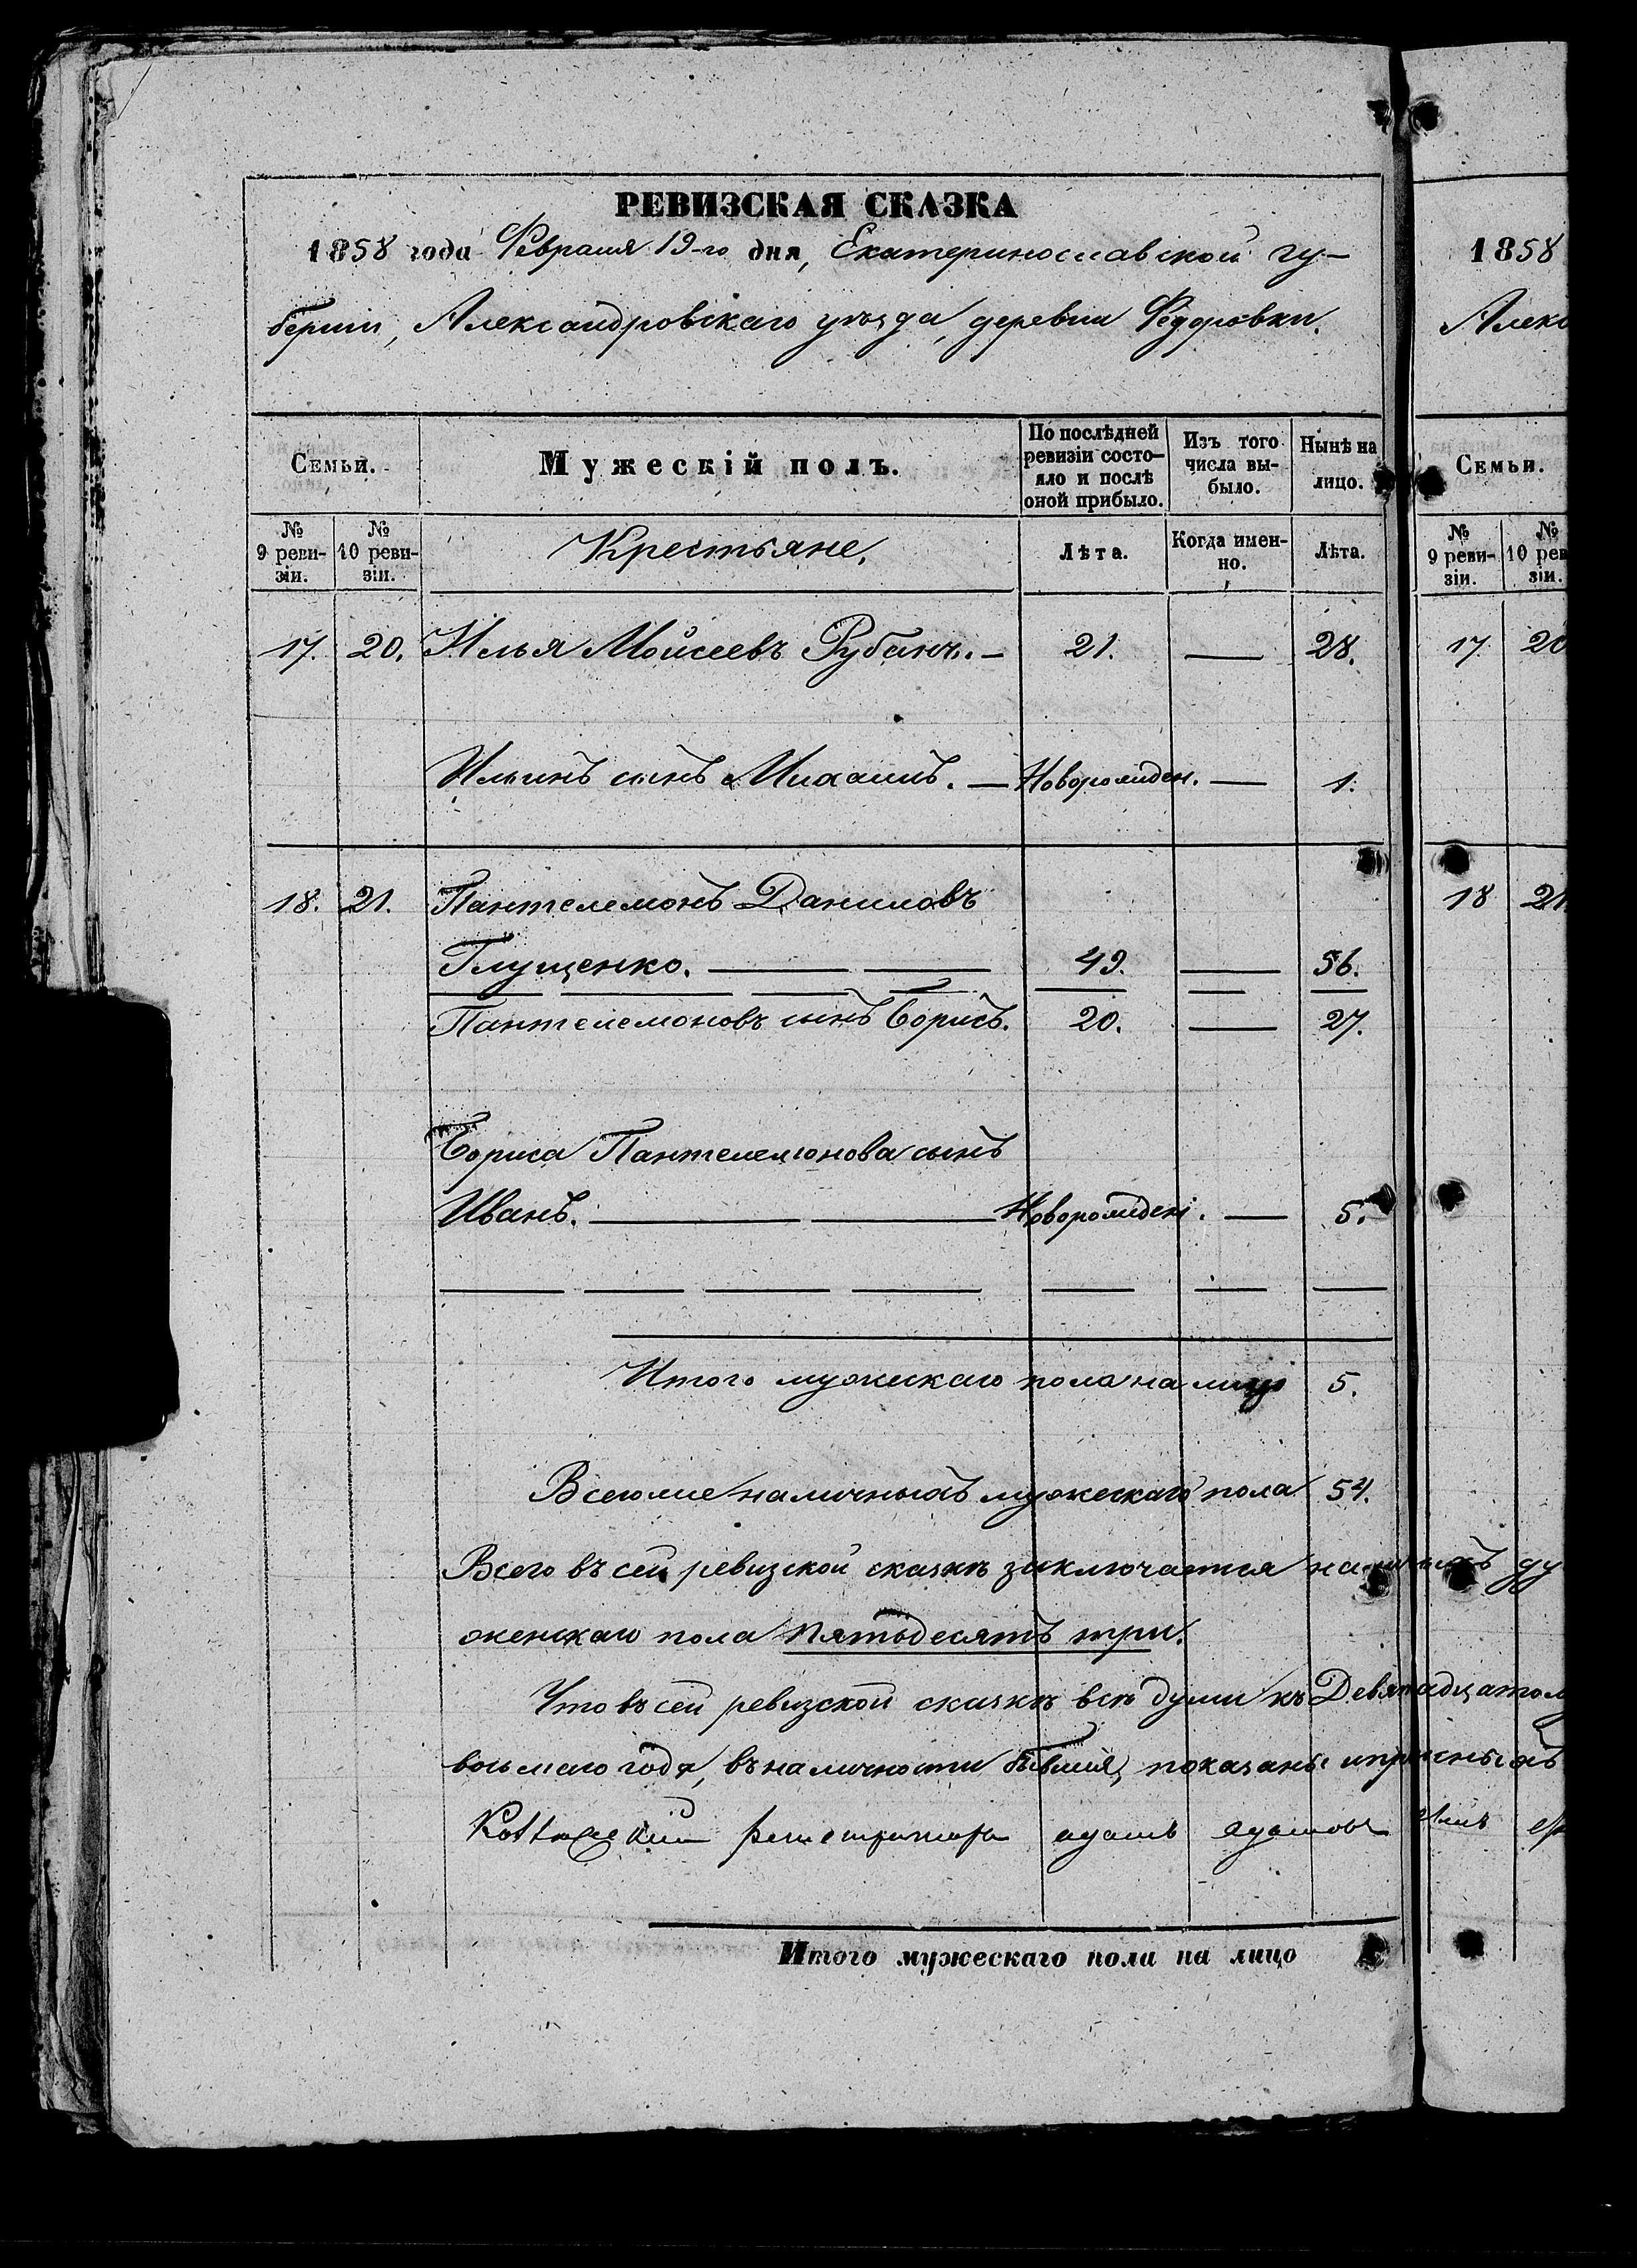 РЕВИЗСКАЯ СКАЗКА
1858 года Февраля 19-го дня, Екатеринославской гу-
берніи, Александровскаго уѣзда, деревни Ѳедоровки.
1858
Алекс
Семьи.
Мужескій полъ.
По послѣдней ревизіи состо-яло и послѣ оной прибыло.
Изъ того числа вы-было.
Нынѣ на лицо.
Семьи.
№ 9 реви-зіи.
№ 10 реви-зіи.
Крестьяне.
Лѣта.
Когда имен-но.
Лѣта.
№ 9 реви-зіи.
№ 10 рев зіи.
17. 20. Илья Мойсеевъ Рубанъ. — 21. — 28. 17 20
Ильинъ сынъ Михаилъ. — Новорожден. — 1.
18. 21. Пантелемонъ Даниловъ 18 21.
Глущенко. — — 49. — 56.
Пантелемоновъ сынъ Борисъ. 20. — 27.
Бориса Пантелемонова сынъ
Иванъ. — — Новорожден. — 5.
Итого мужескаго пола на лицо 5.
Всего же наличныхъ мужескаго пола 54.
Всего въ сей ревизской сказкѣ заключается наличныхъ ду
женскаго пола пятьдесятъ три.
Что въ сей ревизской сказкѣ всѣ души къ Девятнадцатому
восьмаго года, въ наличности бывшія, показаны и
регистраторъ адамъ адамовъ
Итого мужескаго пола на лицо